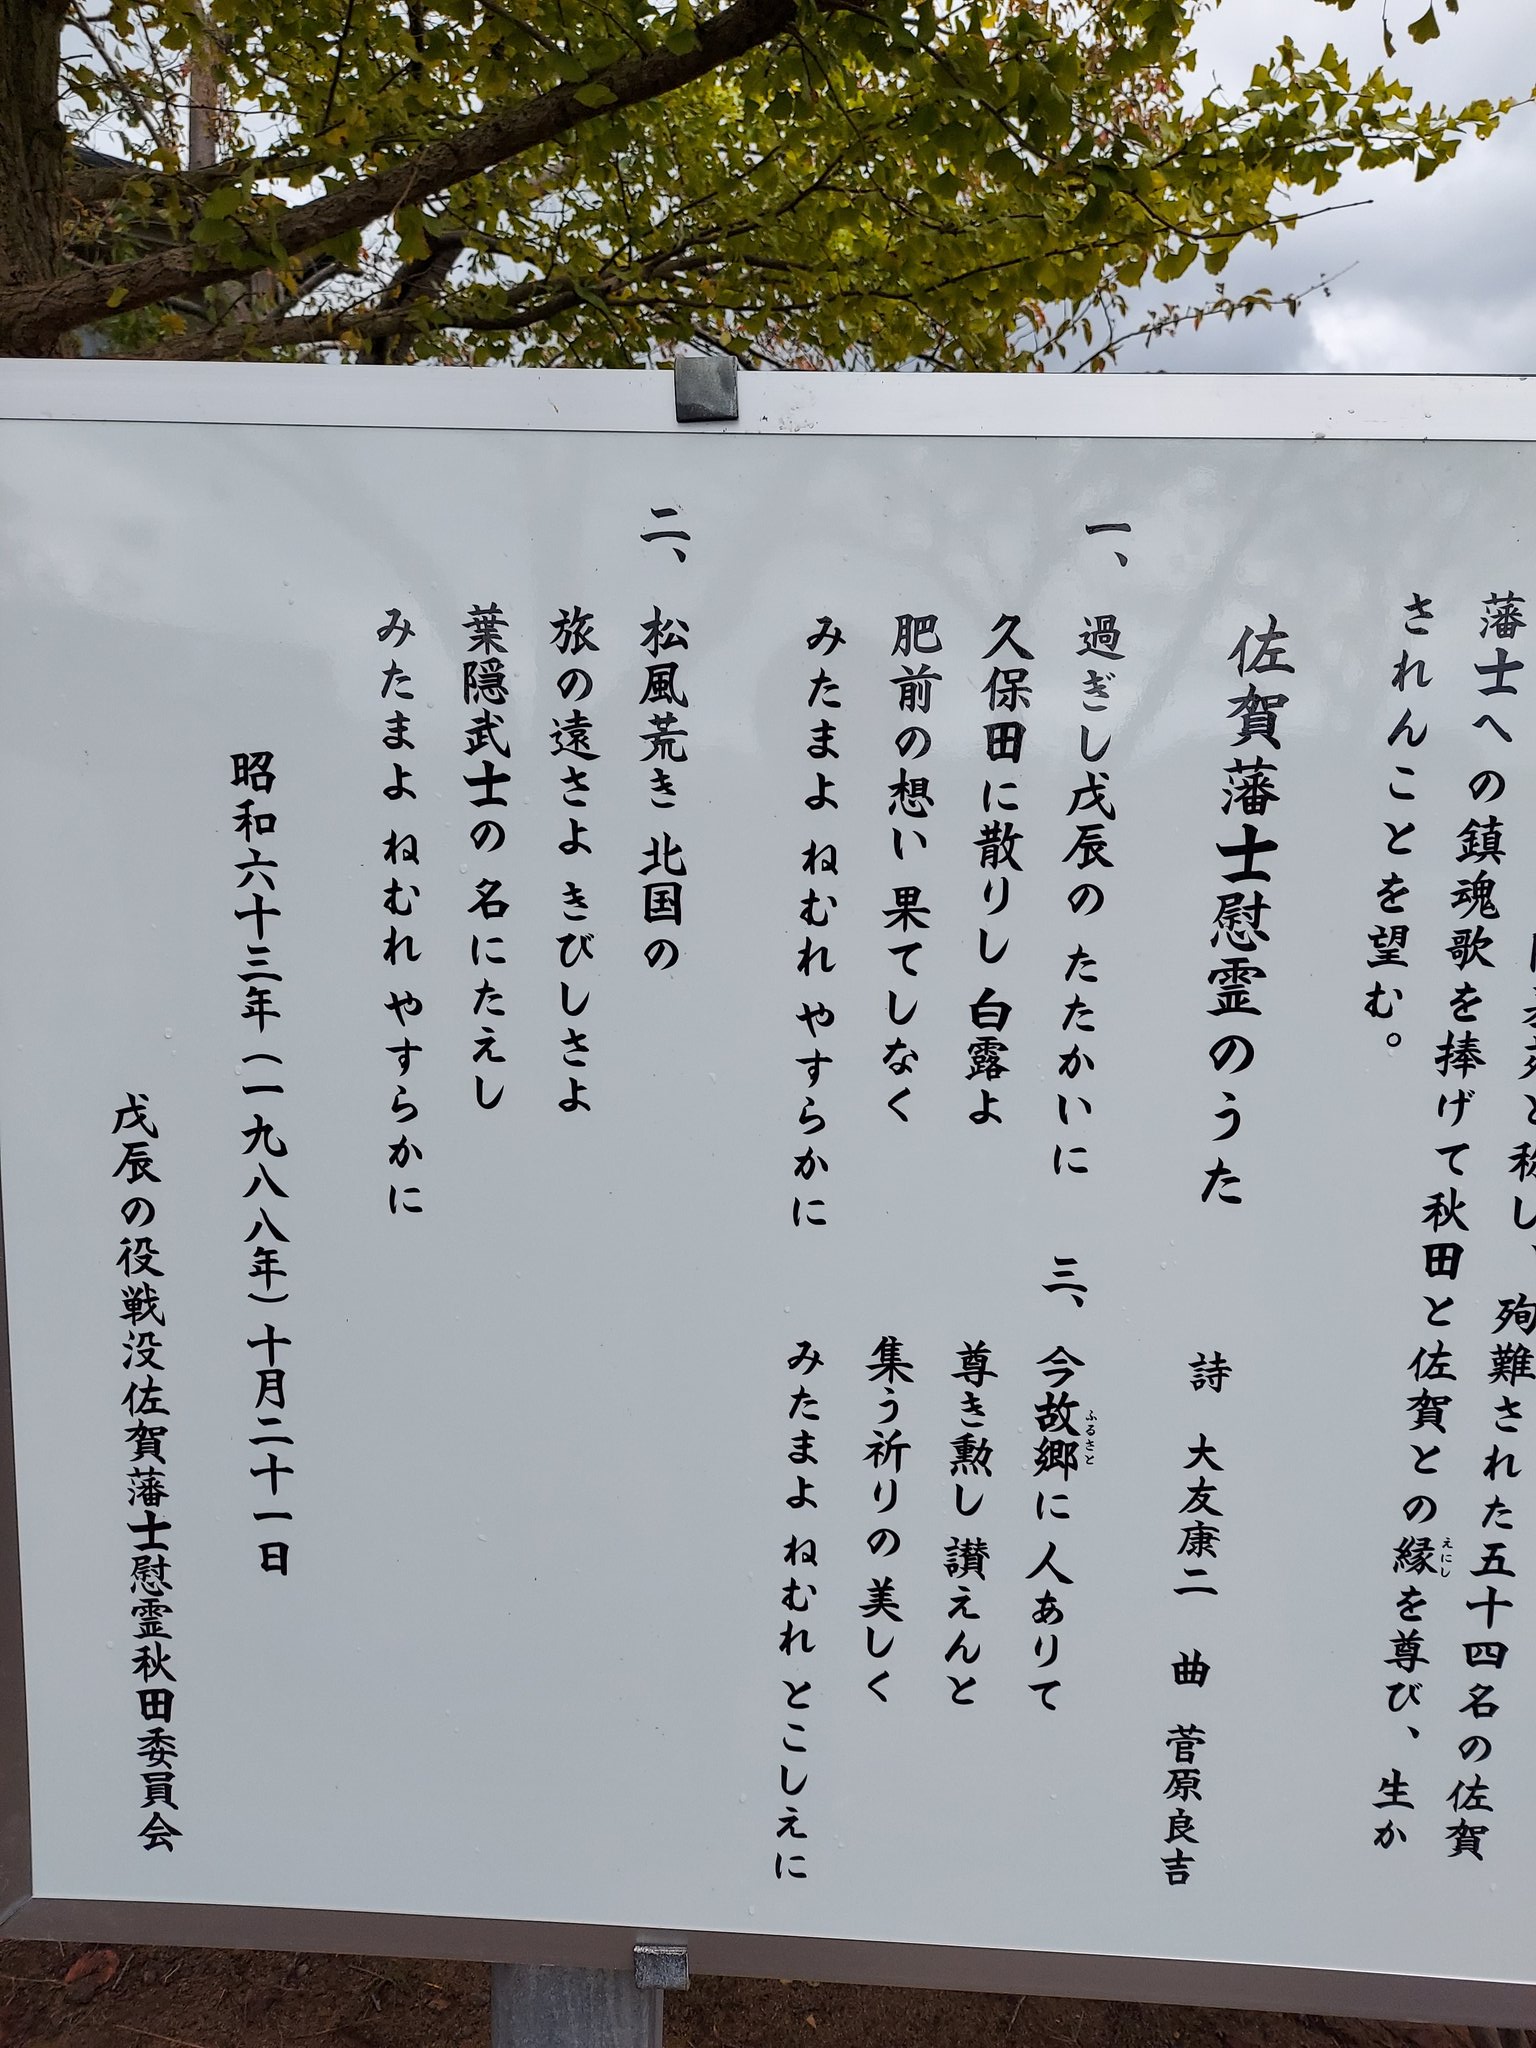 と称し、殉難された五十四名の佐賀
藩士への鎮魂歌を捧げて秋田と佐賀との縁を尊び、生か
えにし
されんことを望む。
佐賀藩士慰霊のうた
詩 大友康二 曲 菅原良吉
一、過ぎし戊辰の たたかいに
久保田に散りし 白露よ
肥前の想い 果てしなく
みたまよ ねむれ やすらかに
二、松風荒き 北国の
旅の遠さよ きびしさよ
葉隠武士の 名にたえし
みたまよ ねむれ やすらかに
三、今故郷に 人ありて
ふるさと
尊き勲し 讃えんと
集う祈りの 美しく
みたまよ ねむれ とこしえに
昭和六十三年(一九八八年)十月二十一日
戊辰の役戦没佐賀藩士慰霊秋田委員会